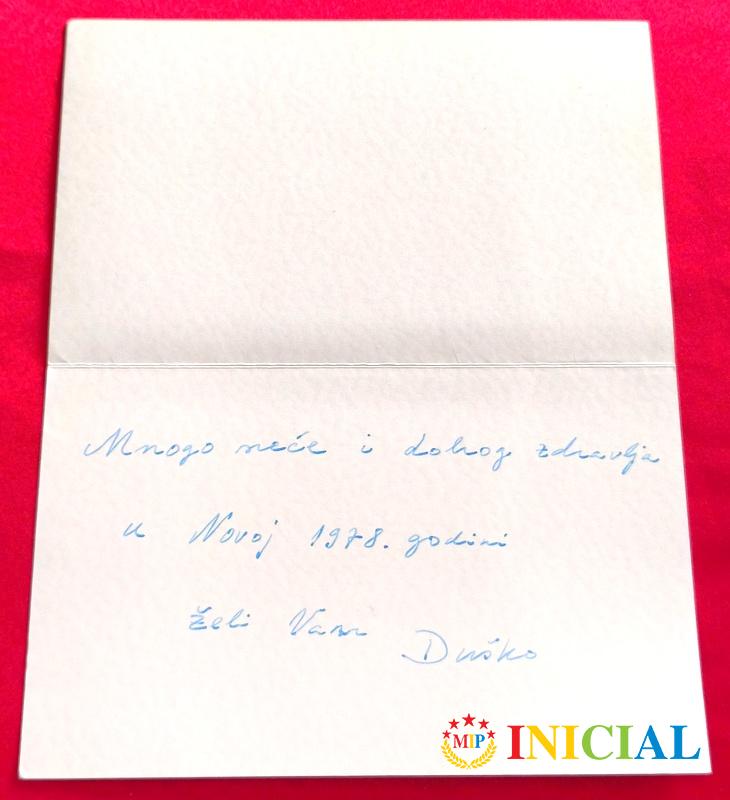 Mnogo sreće i dobrog zdravlja
u Novoj 1978. godini
želi Vam Duško
MIP INICIAL